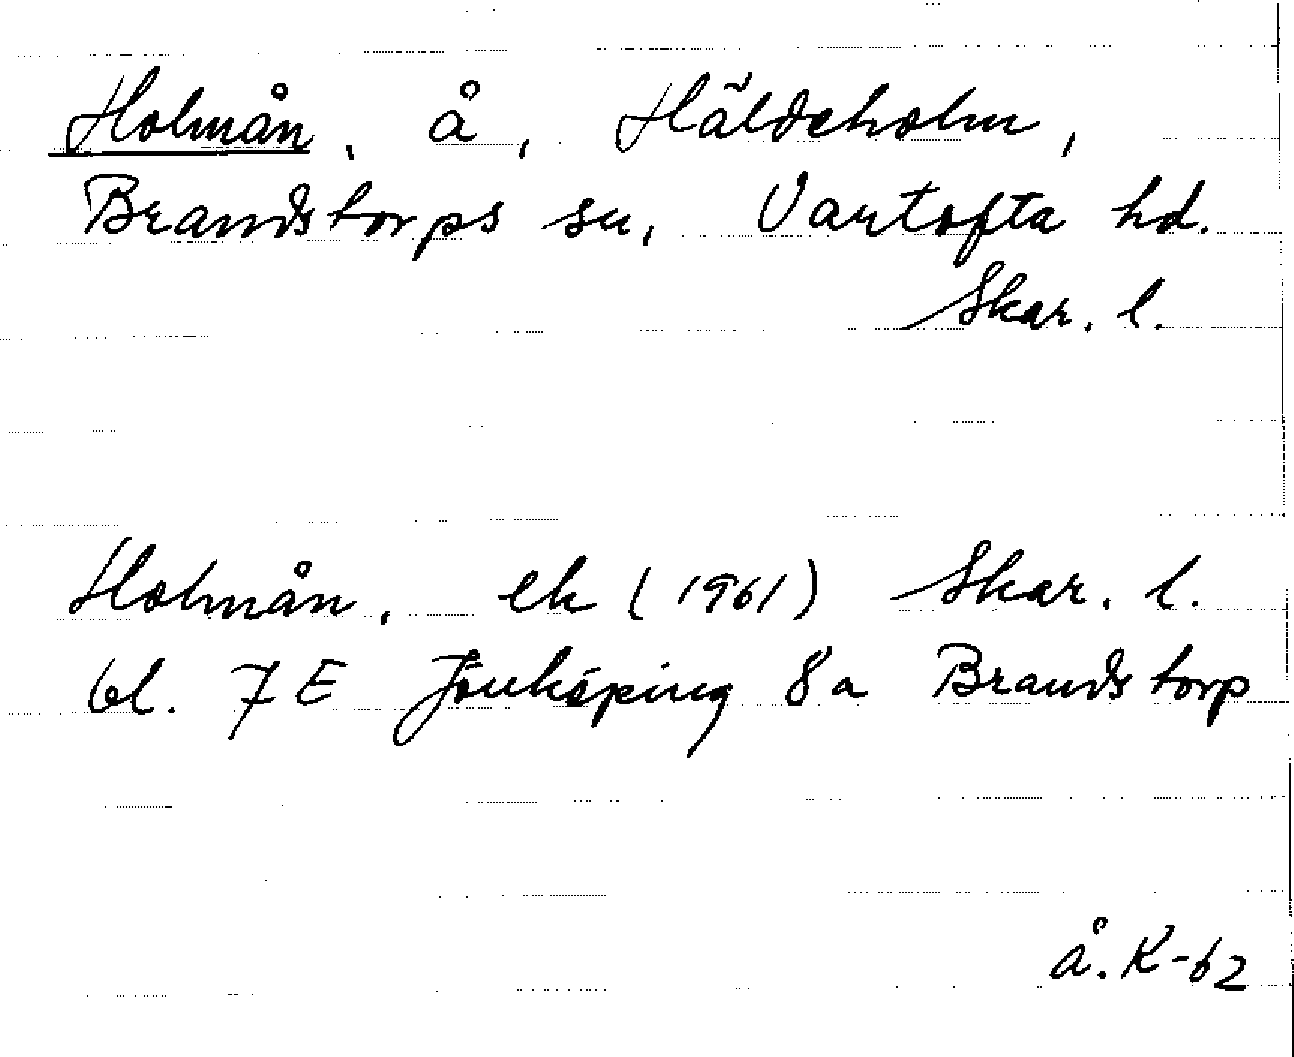 Holmån, å, Häldeholm,
Brandstorps sn, Vartofta hd.
Skar. l.
Holmån, ek (1961) Skar. l.
bl. 7E Jönköping 8a Brandstorp
å. K-62